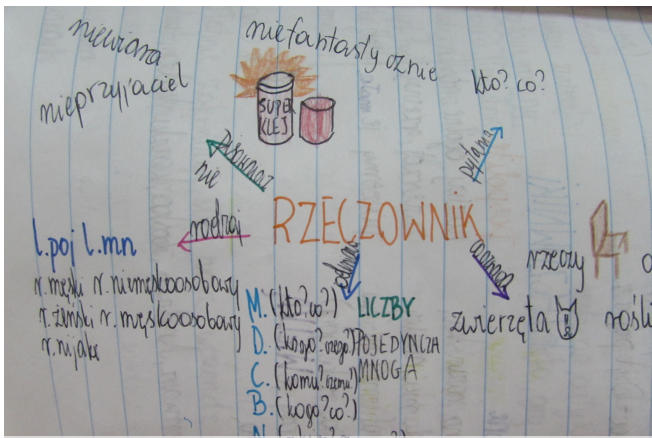 niewiara
niefantastycznie
nieprzyjaciel
kto? co?
SUPER
KLEJ
pisownia z
nie
pytania
RZECZOWNIK
rodzaj
l.poj l.mn
r.męski r.niemęskoosobowy
r.żeński r.męskoosobowy
r.nijaki
odmiana
M. (kto? co?)
D. (kogo? czego?)
C. (komu? czemu?)
B. (kogo? co?)
LICZBY
POJEDYNCZA
MNOGA
rzeczy
zwierzęta
rośli